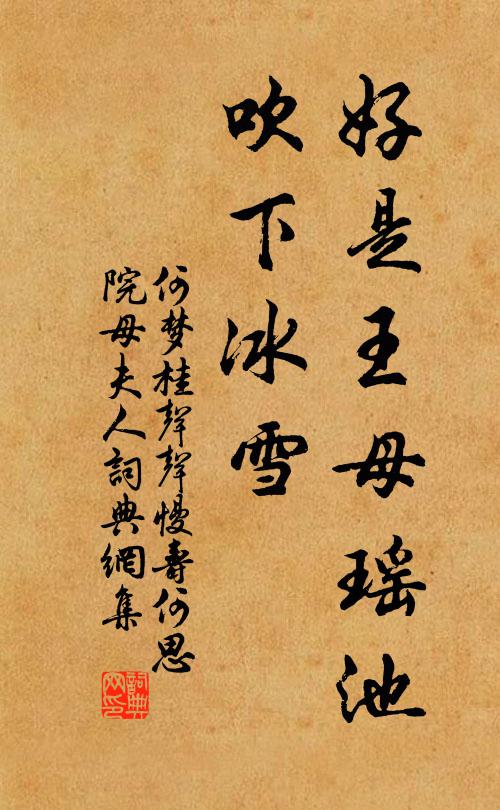 好是王母瑶池
吹下冰雪
何梦桂聲聲慢壽何思
院母夫人詞典網集